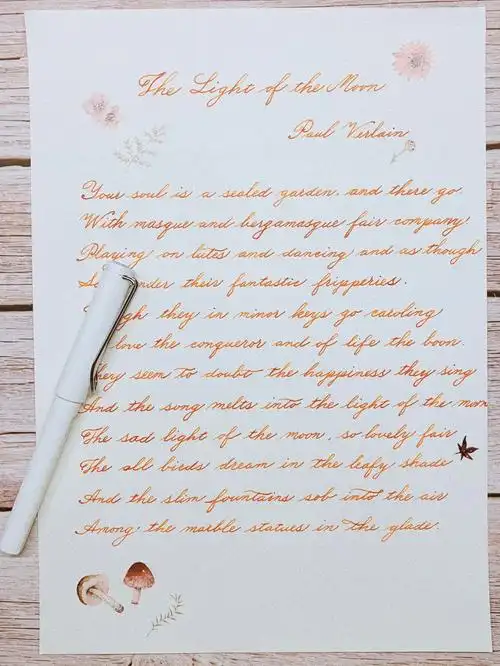 The Light of the Moon
Paul Verlain
Your soul is a sealed garden, and there go
With masque and bergamasque fair company
Playing on lutes and dancing and as though
their fantastic fripperies.
they in minor keys go caroling
love the conqueror and of life the boon.
They seem to doubt the happiness they sing
And the song melts into the light of the moon
The sad light of the moon, so lovely fair
The all birds dream in the leafy shade
And the slim fountains sob into the air
Among the marble statues in the glade.